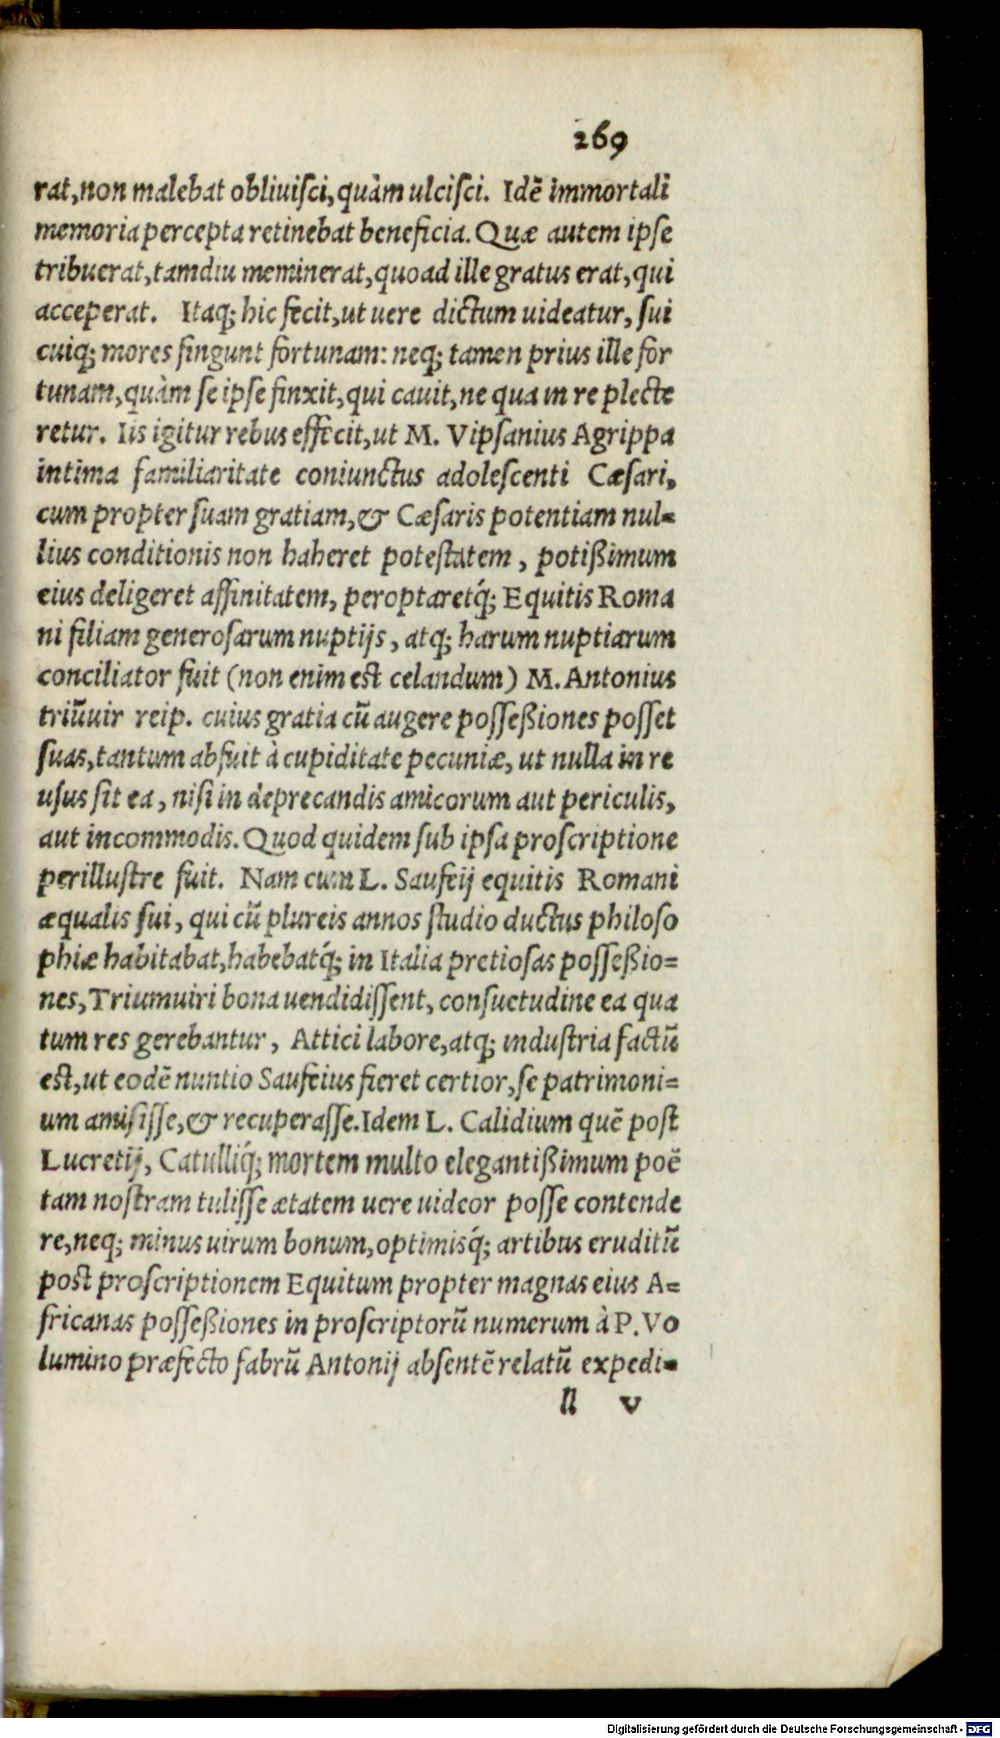 269
rat, non malebat obliuisci, quàm ulcisci. Idẽ immortali
memoria percepta retinebat beneficia. Quæ autem ipse
tribuerat, tamdiu meminerat, quoad ille gratus erat, qui
acceperat. Itaq; hic fecit, ut uere dictum uideatur, sui
cuiq; mores fingunt fortunam: neq; tamen prius ille for
tunam, quàm se ipse finxit, qui cauit, ne qua in re plecte
retur. Iis igitur rebus effecit, ut M. Vipsanius Agrippa
intima familiaritate coniunctus adolescenti Cæsari,
cum propter suam gratiam, & Cæsaris potentiam nul-
lius conditionis non haheret potestatem, potißimum
eius deligeret affinitatem, peroptaretq́; Equitis Roma
ni filiam generosarum nuptijs, atq; harum nuptiarum
conciliator fuit (non enim est celandum) M. Antonius
triũuir reip. cuius gratia cũ augere posseßiones posset
suas, tantum abfuit à cupiditate pecuniæ, ut nulla in re
usus sit ea, nisi in deprecandis amicorum aut periculis,
aut incommodis. Quod quidem sub ipsa proscriptione
perillustre fuit. Nam cum L. Saufeij equitis Romani
æqualis sui, qui cũ plureis annos studio ductus philoso
phiæ habitabat, habebatq́; in Italia pretiosas posseßio=
nes, Triumuiri bona uendidissent, consuetudine ea qua
tum res gerebantur, Attici labore, atq; industria factũ
est, ut eodẽ nuntio Saufeius fieret certior, se patrimoni=
um amisisse, & recuperasse. Idem L. Calidium quẽ post
Lucretij, Catulliq́; mortem multo elegantißimum poẽ
tam nostram tulisse ætatem uere uideor posse contende
re, neq; minus uirum bonum, optimisq́; artibus eruditũ
post proscriptionem Equitum propter magnas eius A=
fricanas posseßiones in proscriptorũ numerum à P. Vo
lumino præfecto fabrũ Antonij absentẽ relatũ expedi-
ll v
Digitalisierung gefördert durch die Deutsche Forschungsgemeinschaft - DFG